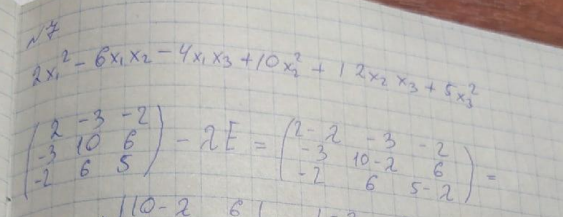 №7
2x₁² - 6x₁x₂ - 4x₁x₃ + 10x₂² + 12x₂x₃ + 5x₃²
( 2 -3 -2 ; -3 10 6 ; -2 6 5 ) - λE = ( 2-λ -3 -2 ; -3 10-λ 6 ; -2 6 5-λ ) =
|10-λ 6|